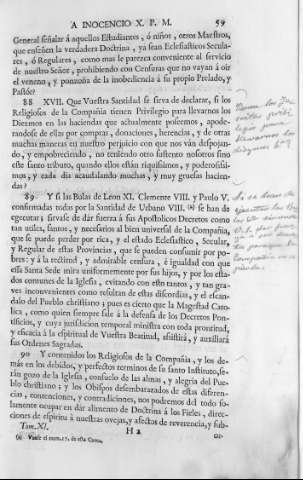 A INOCENCIO X. P. M. 59
General señalar á aquellos Estudiantes, ó niños, otros Maestros,
que enseñen la verdadera Doctrina, ya sean Eclesiasticos Secula-
res, ó Regulares, como mas le parezca conveniente al servicio
de nuestro Señor, prohibiendo con Censuras que no vayan á oir
el veneno, y ponzoña de la inobediencia á su propio Prelado, y
Pastór?
88 XVII. Que Vuestra Santidad se sirva de declarar, si los
Religiosos de la Compañia tienen Privilegio para llevarnos los
Diezmos en las haciendas que actualmente poseemos, apode-
randose de ellas por compras, donaciones, herencias, y de otras
muchas maneras en nuestro perjuicio con que nos ván despojan-
do, y empobreciendo, no teniendo otro sustento nosotros sino
este santo tributo, quando ellos están riquisimos, y poderosisi-
mos, y cada dia acaudalando muchas, y muy gruesas hacien-
das?
89 Y si las Bulas de Leon XI. Clemente VIII. y Paulo V.
confirmadas todas por la Santidad de Urbano VIII. (a) se han de
egecutar; sirvase de dár fuerza á sus Apostolicos Decretos como
tan utiles, santos, y necesarios al bien universal de la Compañia,
que se puede perder por rica, y el estado Eclesiastico, Secular,
y Regular de estas Provincias, que se pueden consumir por po-
bres: y á la rectitud, y admirable censura, é igualdad con que
esa Santa Sede mira uniformemente por sus hijos, y por los esta-
dos comunes de la Iglesia, evitando con esto tantos, y tan gra-
ves inconvenientes como resultan de estas discordias, y el escan-
dalo del Pueblo christiano; pues es cierto que la Magestad Cato-
lica, como quien siempre sale á la defensa de los Decretos Pon-
tificios, y cuya jurisdicion temporal ministra con toda prontitud,
y eficacia á la espiritual de Vuestra Beatitud, asistirá, y auxiliará
sus Ordenes Sagradas.
90 Y contenidos los Religiosos de la Compañia, y los de-
más en los debidos, y perfectos terminos de su santo Instituto, se-
rán gozo de la Iglesia, consuelo de las almas, y alegria del Pue-
blo christiano; y los Obispos desembarazados de estas diferen-
cias, contenciones, y contradiciones, nos podremos del todo so-
lamente ocupar en dár alimento de Doctrina á los Fieles, direc-
ciones de espiritu á nuestras ovejas, y afectos de reverencia, y sub-
Tom. XI. H 2 or-
(a) Vease el num. 17. de esta Carta.